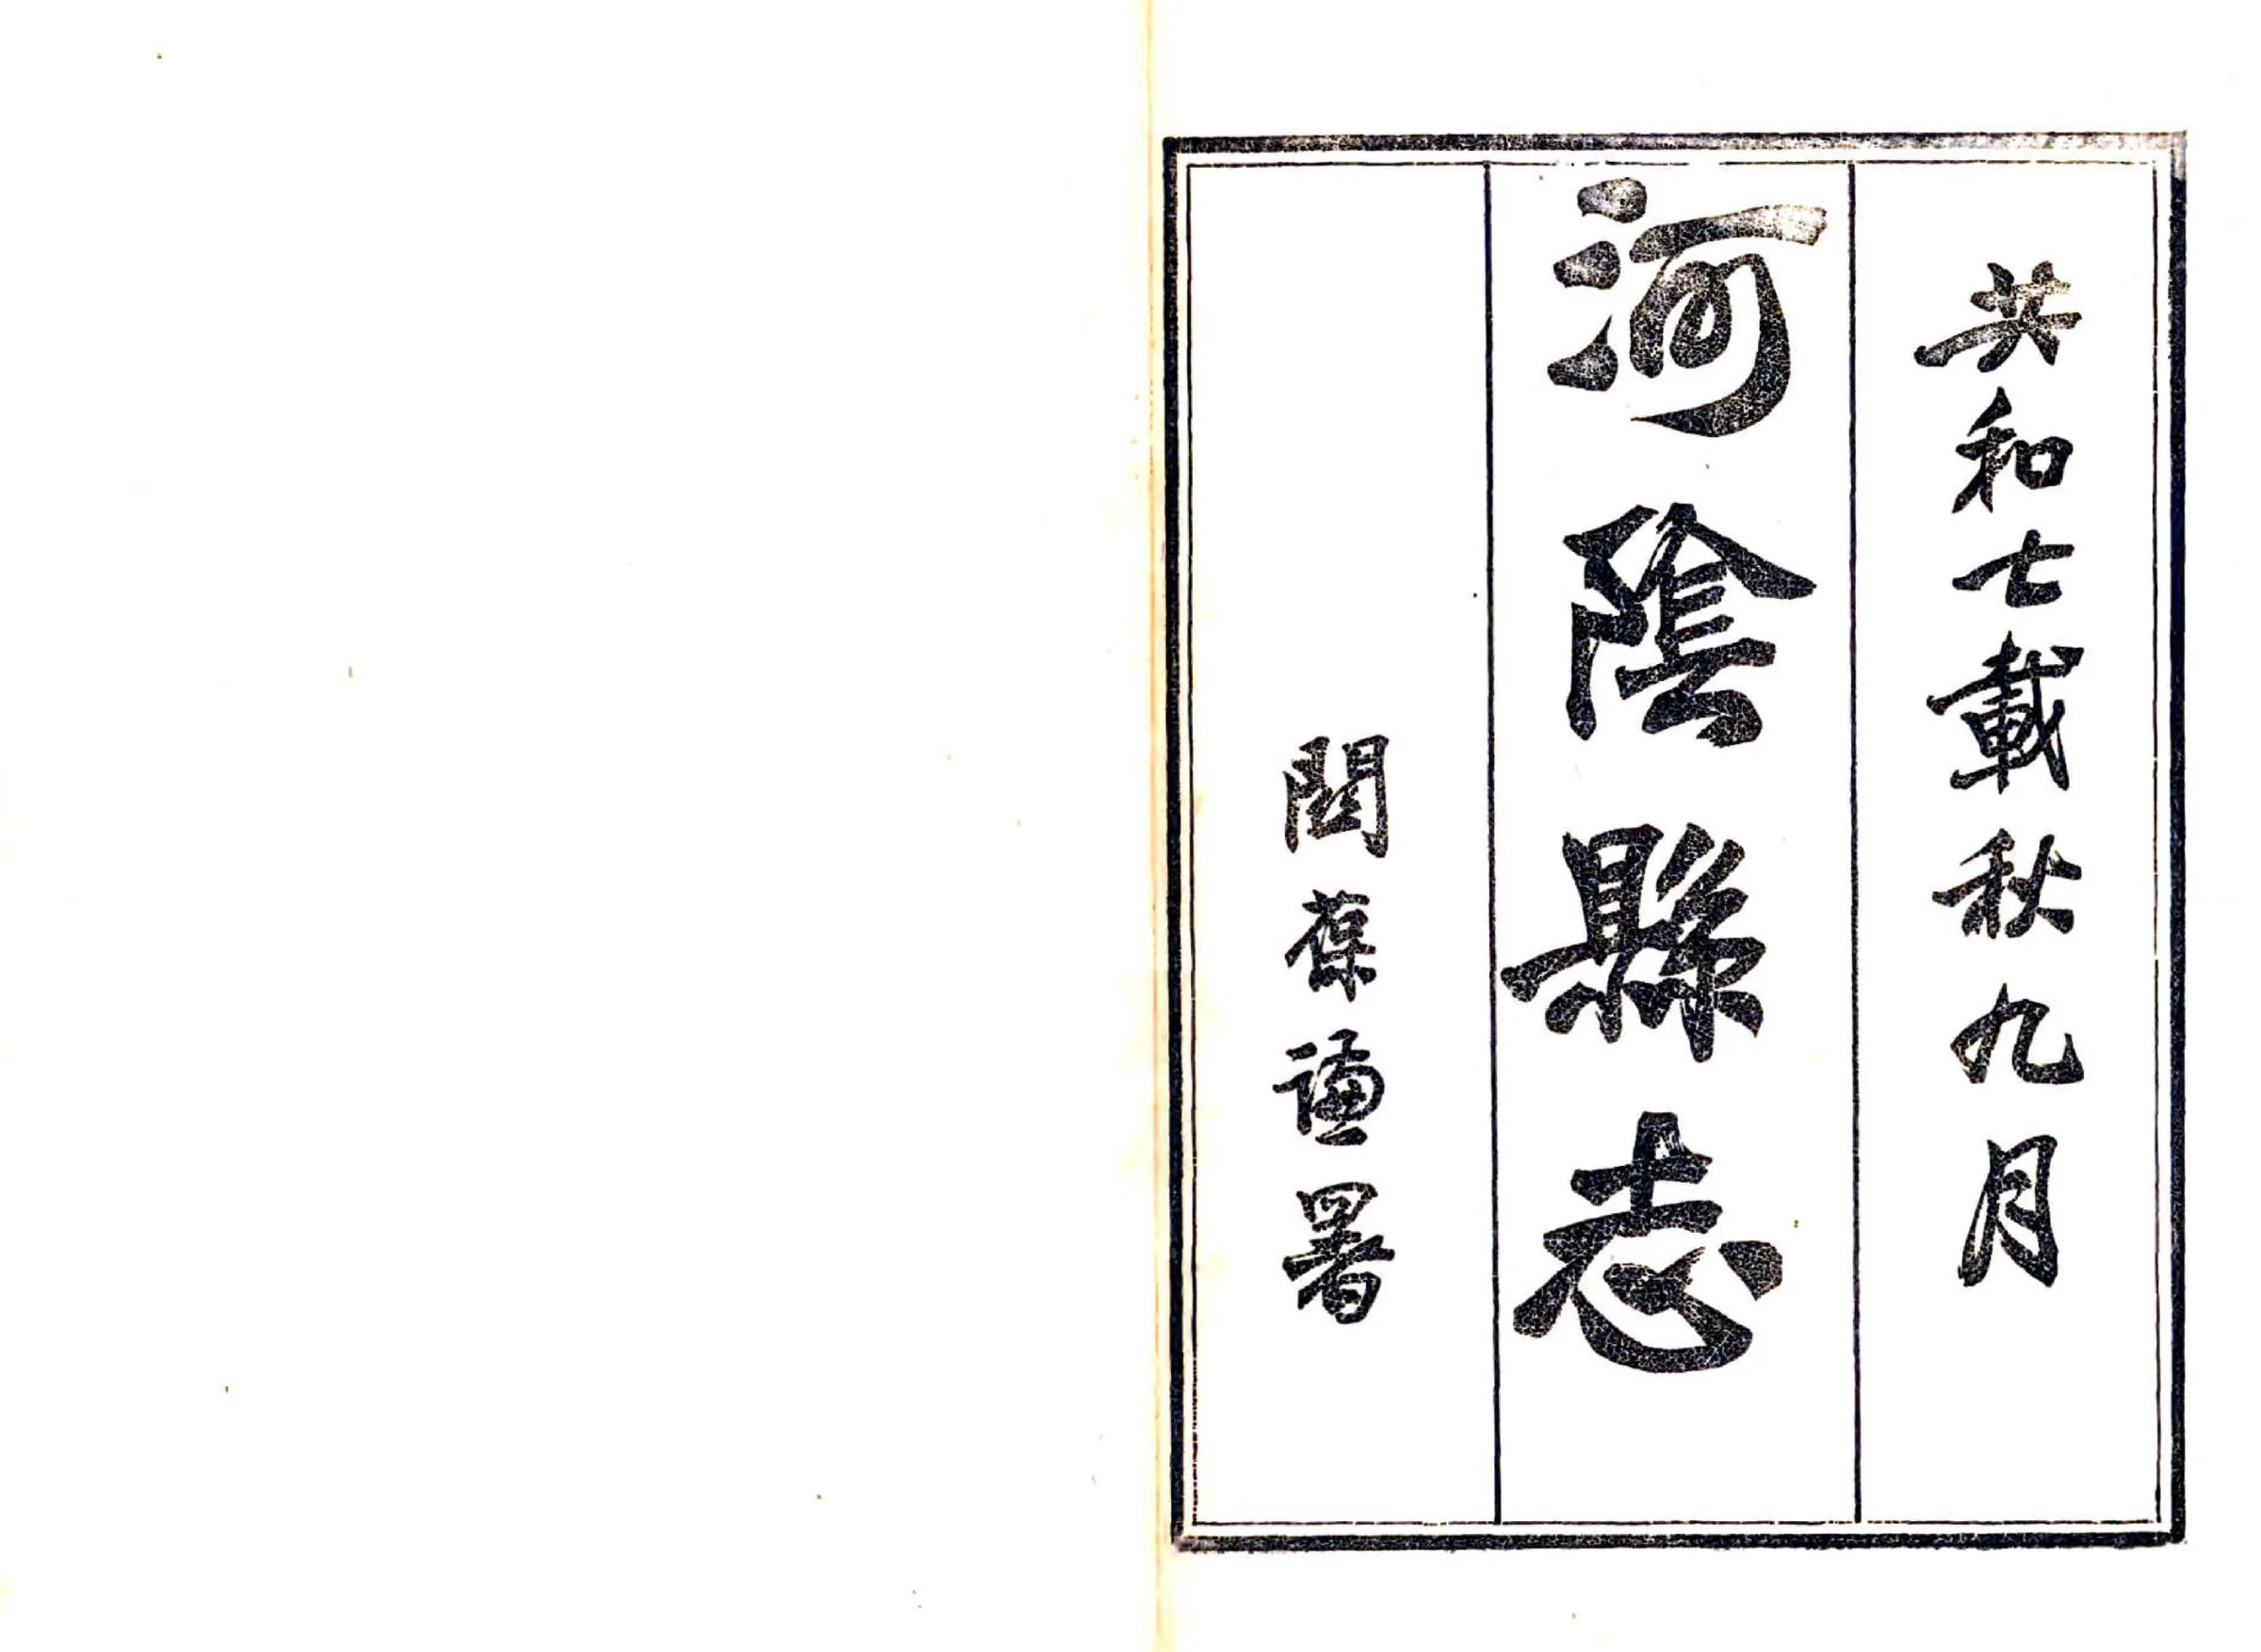 共和七載秋九月
河陰縣志
關葆謙署